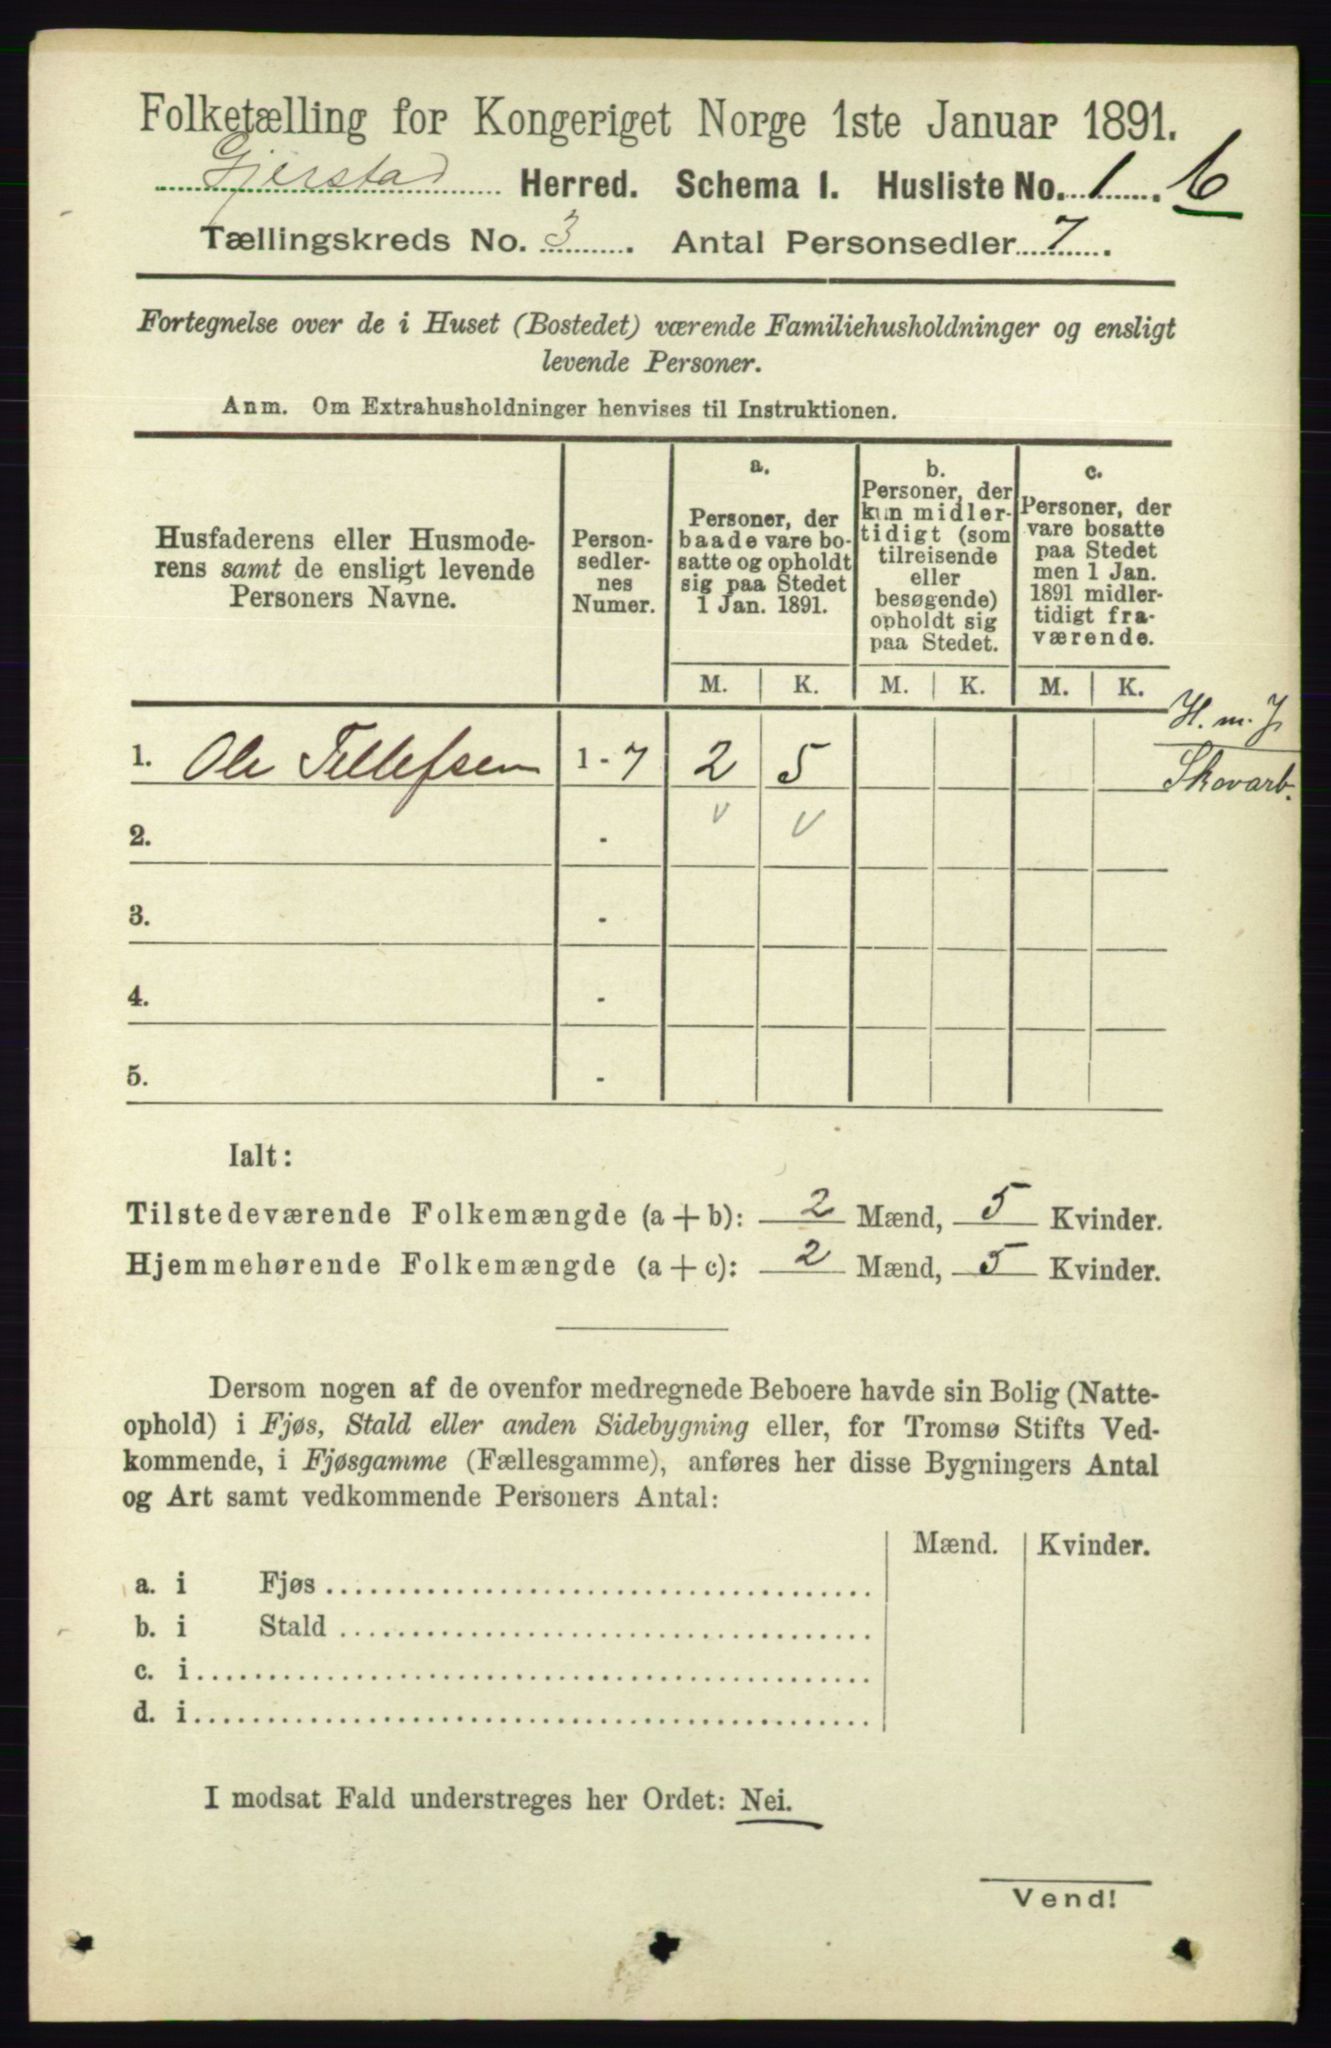 Folketælling for Kongeriget Norge 1ste Januar 1891.
Gjerstad Herred. Schema I. Husliste No. 1.
Tællingskreds No. 3. Antal Personsedler 7.
Fortegnelse over de i Huset (Bostedet) værende Familiehusholdninger og ensligt
levende Personer.
Anm. Om Extrahusholdninger henvises til Instruktionen.
Husfaderens eller Husmode-
rens samt de ensligt levende
Personers Navne.
Person-
sedler-
nes
Numer.
a.
Personer, der
baade vare bo-
satte og opholdt
sig paa Stedet
1 Jan. 1891.
b.
Personer, der
kun midler-
tidigt (som
tilreisende
eller
besøgende)
opholdt sig
paa Stedet.
c.
Personer, der
vare bosatte
paa Stedet
men 1 Jan.
1891 midler-
tidigt fra-
værende.
M. K. M. K. M. K.
H. m. J.
Skovarb.
1. Ole Tellefsen 1-7 2 5
2. -
3. -
4. -
5. -
Ialt:
Tilstedeværende Folkemængde (a+b): 2 Mænd, 5 Kvinder.
Hjemmehørende Folkemængde (a+c): 2 Mænd, 5 Kvinder.
Dersom nogen af de ovenfor medregnede Beboere havde sin Bolig (Natte-
ophold) i Fjøs, Stald eller anden Sidebygning eller, for Tromsø Stifts Ved-
kommende, i Fjøsgamme (Fællesgamme), anføres her disse Bygningers Antal
og Art samt vedkommende Personers Antal:
Mænd. Kvinder.
a. i Fjøs
b. i Stald
c. i
d. i
I modsat Fald understreges her Ordet: Nei.
Vend!